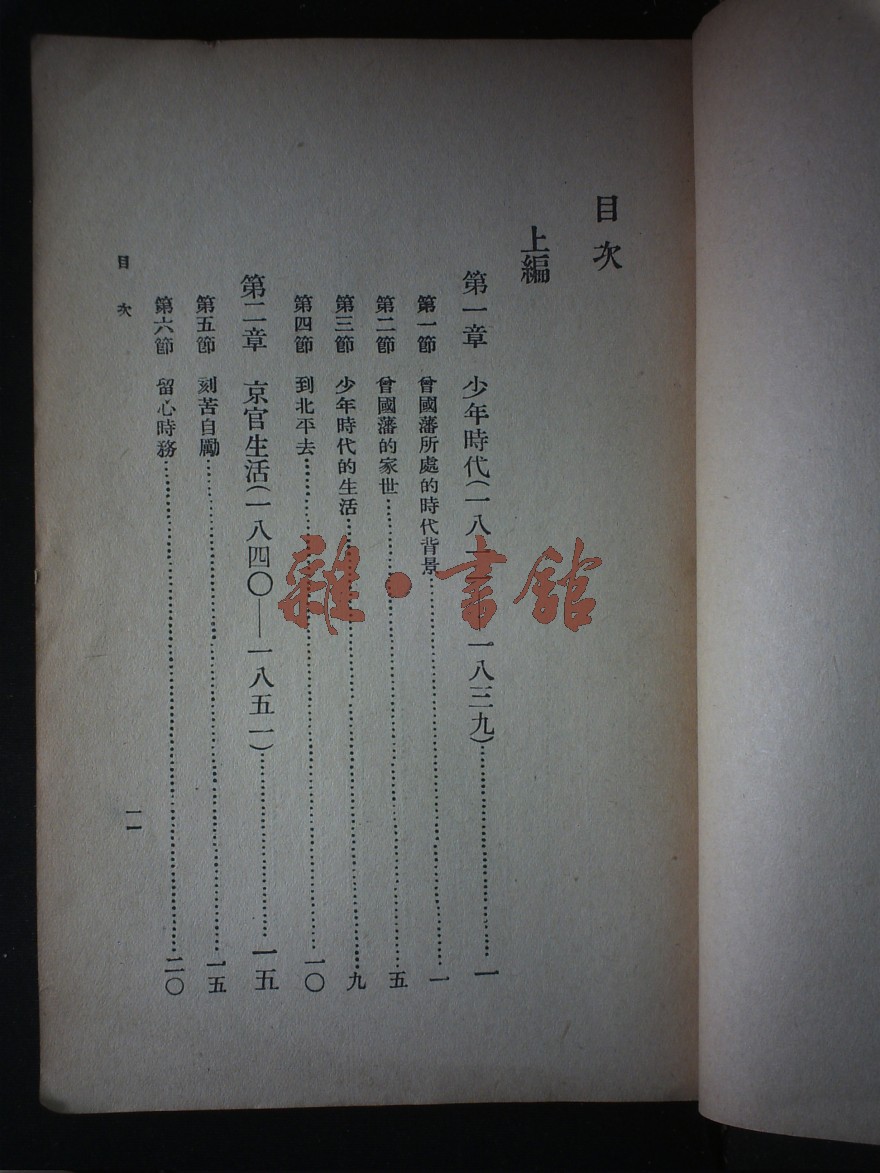 目次
上編
第一章 少年時代(一八一 一八三九)……一
第一節 曾國藩所處的時代背景……一
第二節 曾國藩的家世……五
第三節 少年時代的生活……九
第四節 到北平去……一〇
第二章 京官生活(一八四〇—一八五一)……一五
第五節 刻苦自勵……一五
第六節 留心時務……二〇
目次
一一
雜·書館